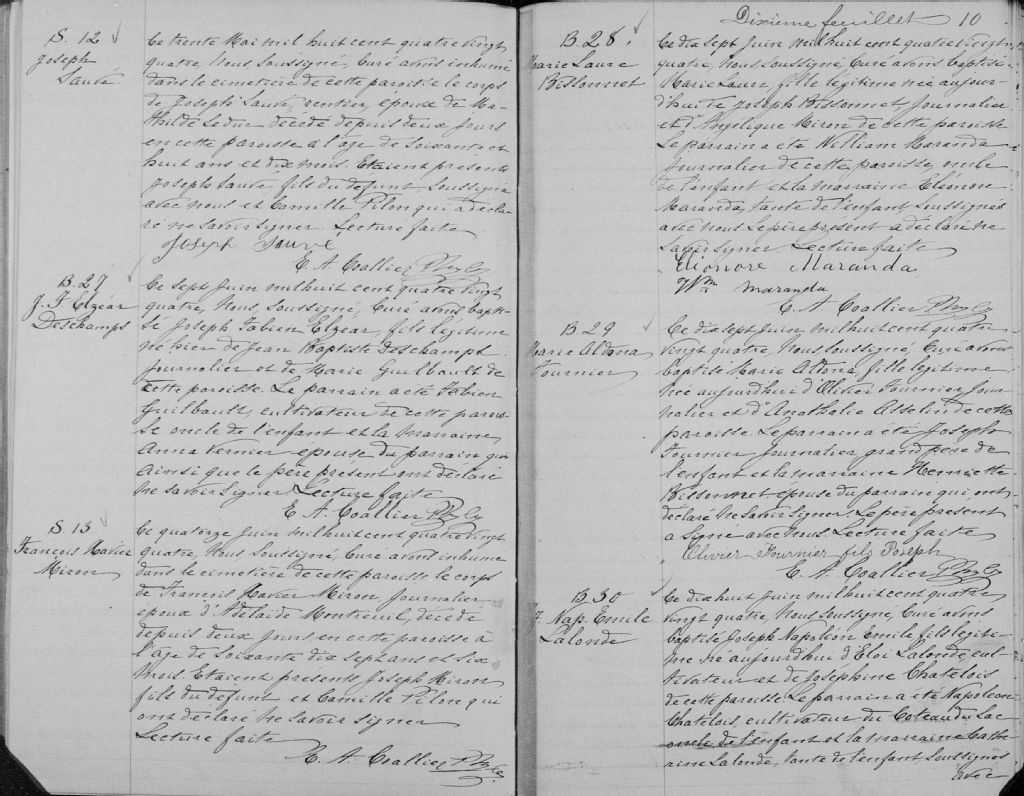 S. 12
Joseph
Sauvé
Ce trente Mai mil huit cent quatre vingt
quatre, Nous soussigné, Curé avons inhumé
dans le cimetière de cette paroisse le corps
de Joseph Sauvé, rentier, epoux de Ma-
thilde Leduc décédé depuis deux jours
en cette paroisse à l'age de soixante et
huit ans et dix mois. Etaient présents
Joseph Sauvé, fils du defunt, soussigné
avec nous et Camille Pilon qui a décla-
ré ne savoir signer. Lecture faite
Joseph Sauvé
E. A. Coallier Ptre Cé
B. 27
J. F. Elzéar
Deschamps
Ce sept Juin mil huit cent quatre vingt
quatre, Nous soussigné, Curé avons bapti-
sé Joseph Fabien Elzear, fils legitime
né hier de Jean Baptiste Deschamps
journalier et de Marie Guilbault de
cette paroisse. Le parrain a été Fabien
Guilbault, cultivateur de cette parois-
se oncle de l'enfant et la marraine
Anna Vernier épouse du parrain qui
ainsi que le père présent ont déclaré
ne savoir signer. Lecture faite
E. A. Coallier Ptre Cé
S 13
François Xavier
Miron
Ce quatorze Juin mil huit cent quatre vingt
quatre, Nous soussigné, Curé avons inhumé
dans le cimetière de cette paroisse le corps
de François Xavier Miron journalier
epoux d'Adelaide Montreuil, décédé
depuis deux jours en cette paroisse à
l'age de soixante dix sept ans et six
mois. Etaient presents Joseph Miron
fils du defunt et Camille Pilon qui
ont déclaré ne savoir signer
Lecture faite
E. A. Coallier Ptre Cé.
Dixième feuillet 10
B. 28.
Marie Laure
Bissonnet
Ce dix sept Juin mil huit cent quatre vingt
quatre, Nous soussigné, Curé avons baptisé
Marie Laure, fille légitime née aujour-
d'hui de Joseph Bissonnet, journalier
et d'Angélique Miron de cette paroisse
Le parrain a été William Maranda
journalier de cette paroisse, oncle
de l'enfant et la marraine Eléonore
Maranda, tante de l'enfant soussignés
avec nous. Le père present a déclaré ne
savoir signer. Lecture faite
Elionore Maranda
Wm maranda
E. A. Coallier Ptre Cé
B 29
Marie Aldona
Fournier
Ce dix sept Juin, mil huit cent quatre
vingt quatre, Nous soussigné, Curé avons
baptisé Marie Aldona, fille legitime
née aujourd'hui d'Olivier Fournier jour-
nalier et d'Anathalie Asselin de cette
paroisse. Le parrain a été Joseph
Fournier journalier, grand père de
l'enfant et la marraine Henriette
Bissonnet épouse du parrain qui ont
declaré ne savoir signer. Le père present
a signé avec nous. Lecture faite
Olivier Fournier fils Poseph
E. A. Coallier Ptre Cé
B 30
J. Nap. Emile
Lalonde
Ce dix huit Juin mil huit cent quatre
vingt quatre, Nous soussigné, Curé avons
baptisé Joseph Napoléon Emile fils légiti-
me né aujourd'hui d'Eloi Lalonde, cul-
tivateur et de Joséphine Chatelois
de cette paroisse. Le parrain a été Napoleon
Chatelois, cultivateur du Coteau du Lac
oncle de l'enfant et la marraine Cathe-
rine Lalonde, tante de l'enfant soussignés
avec